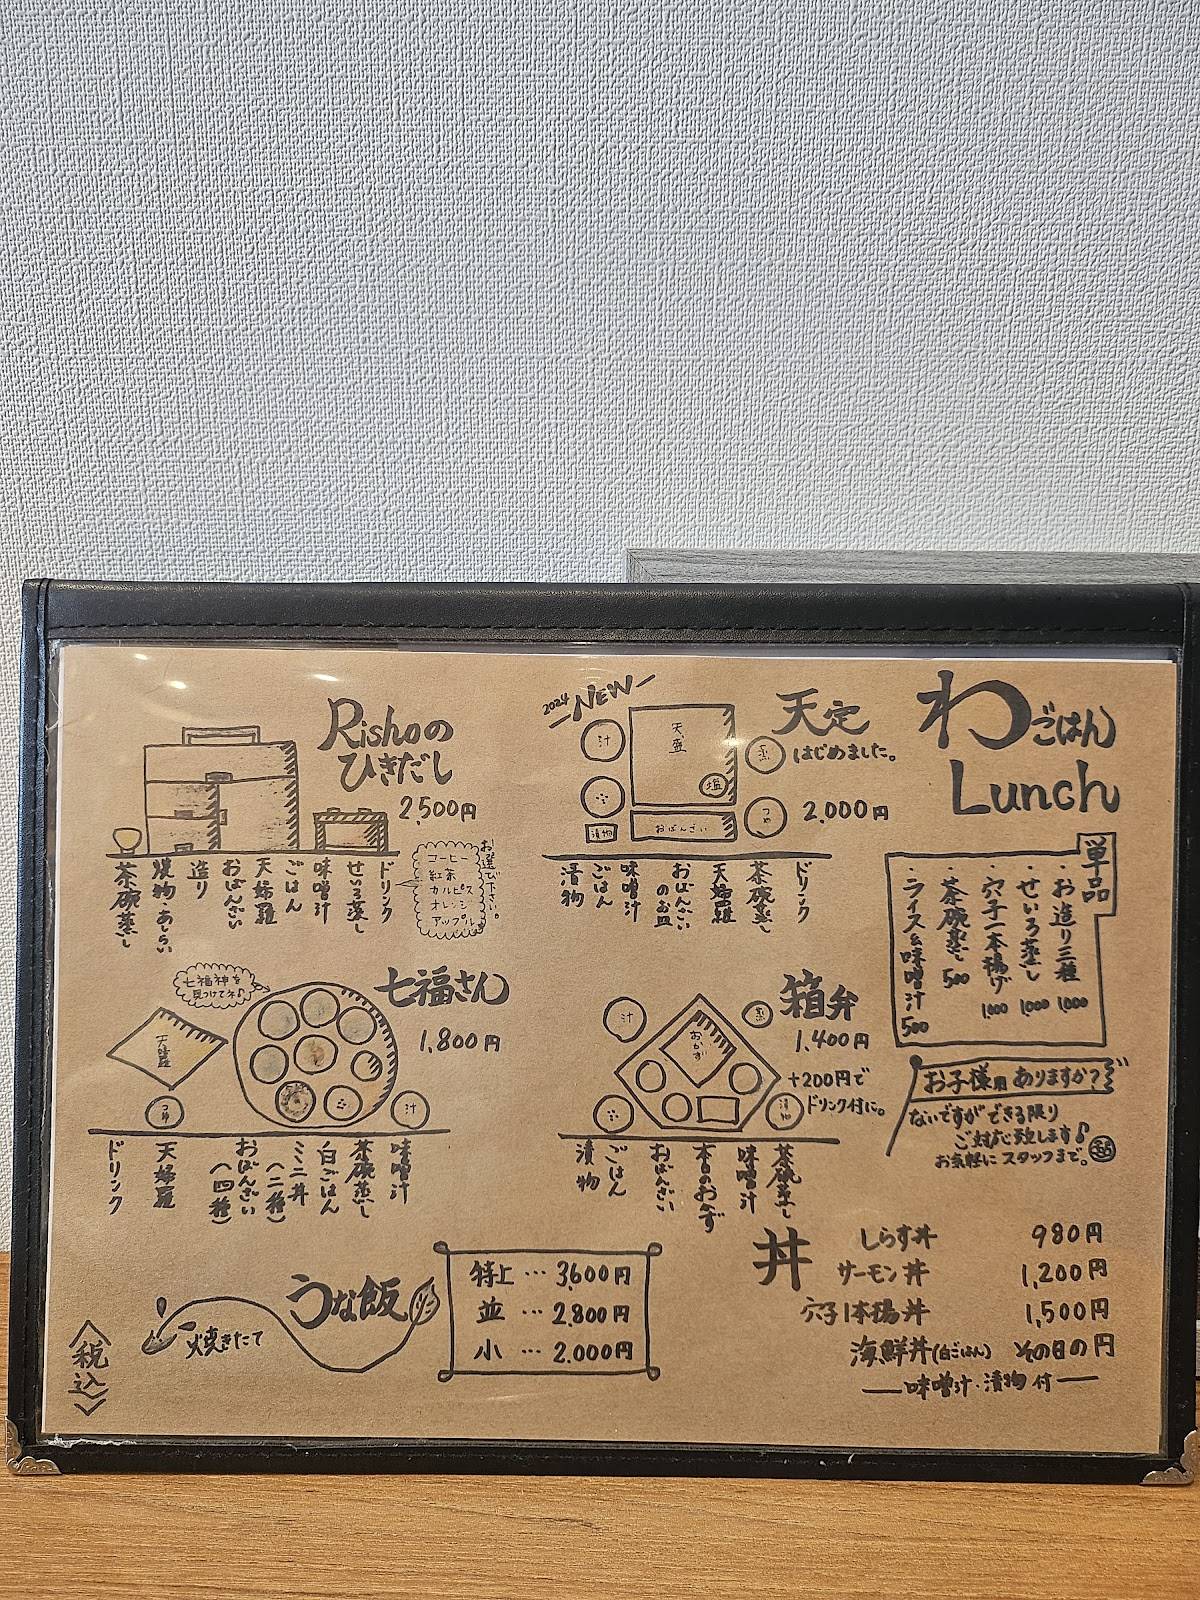 わごはん
Lunch
2024
NEW
天定
はじめました。
2,000円
汁
天盛
塩
茶
つゆ
漬物
おばんざい
ドリンク
茶碗蒸し
天婦羅
おばんざい
のお皿
味噌汁
ごはん
漬物
Rishoの
ひきだし
2,500円
お選び下さい。
コーヒー
紅茶
カルピス
オレンジ
アップル
ドリンク
せいろ蒸し
味噌汁
ごはん
天婦羅
おばんざい
造り
焼物・あしらい
茶碗蒸し
単品
・お造り三種 1000
・せいろ蒸し 1000
・穴子一本揚げ 1000
・茶碗蒸し 500
・ライス&味噌汁 500
お子様用ありますか?
ないですができる限り
ご対応致します♪
お気軽にスタッフまで。
箱弁
1,400円
+200円で
ドリンク付に。
汁
おかず
漬物
茶碗蒸し
味噌汁
本日のおかず
おばんざい
ごはん
漬物
七福さん
1,800円
七福神を
見つけてネ♪
天盛
つゆ
汁
味噌汁
茶碗蒸し
白ごはん
ミニ丼
(二種)
おばんざい
(四種)
天婦羅
ドリンク
丼
しらす丼 980円
サーモン丼 1,200円
穴子1本揚丼 1,500円
海鮮丼(白ごはん) その日の円
味噌汁・漬物付
うな飯
焼きたて
特上…3,600円
並…2,800円
小…2,000円
税込